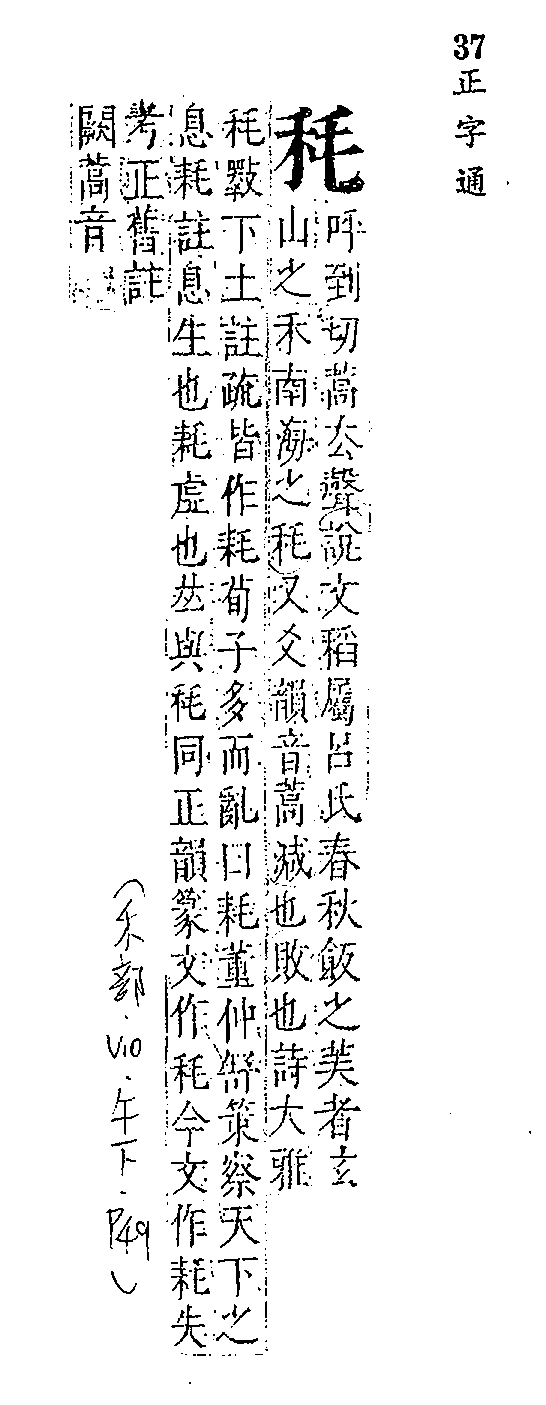 37正字通
秏
呼到切蒿去聲說文稻屬呂氏春秋飯之美者玄
山之禾南海之秏又爻韻音蒿減也敗也詩大雅
秏斁下土註疏皆作耗荀子多而亂曰耗董仲舒策察天下之
息耗註息生也耗虛也𠀤與秏同正韻篆文作秏今文作耗失
考正舊註
闕蒿音
(禾部.V10.午下.P49)